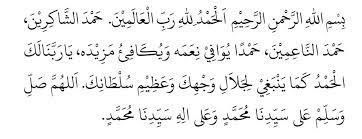 بِسْمِ اللهِ الرَّحْمٰنِ الرَّحِيْمِ اَلْحَمْدُ لِلهِ رَبِّ الْعَالَمِيْنَ. حَمْدَ الشَّاكِرِيْنَ،
حَمْدَ النَّاعِمِيْنَ، حَمْدًا يُوَافِيْ نِعَمَهُ وَيُكَافِئُ مَزِيْدَه، يَا رَبَّنَالَكَ
الْحَمْدُ كَمَا يَنْبَغِيْ لِجَلَالِ وَجْهِكَ وَعَظِيْمِ سُلْطَانِكَ. اَللهُمَّ صَلِّ
وَسَلِّمْ عَلَى سَيِّدِنَا مُحَمَّدٍ وَعَلَى الِهِ سَيِّدِنَا مُحَمَّدٍ.